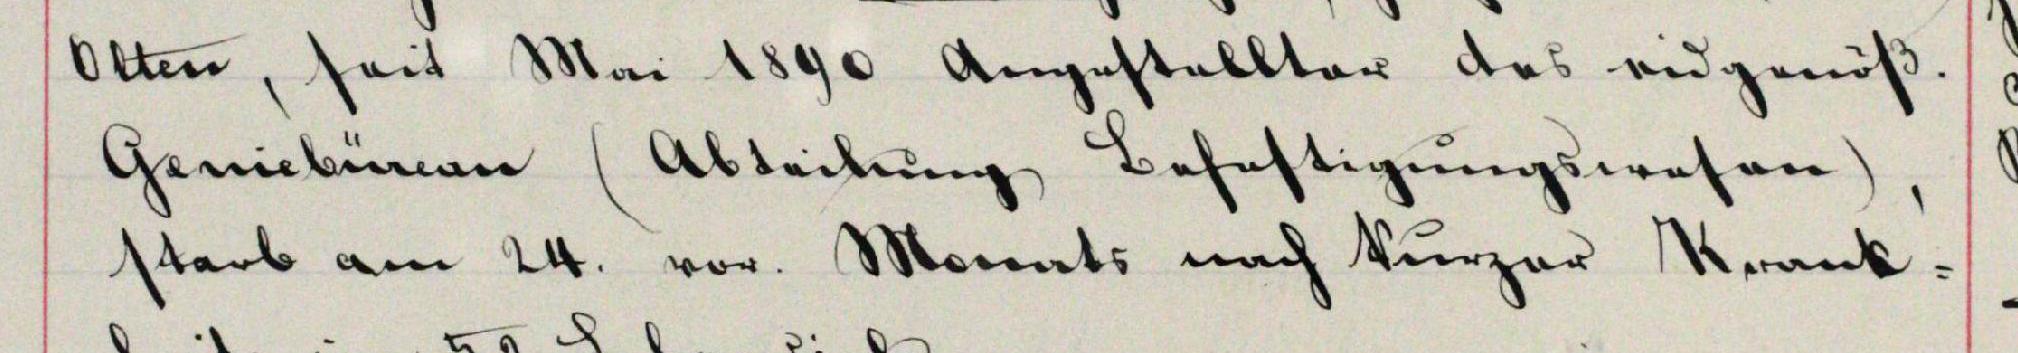 Olten, seit Mai 1890 Angestellter des eidgenöß.
Geniebüreau (Abteilung Befestigungswesen),
starb am 24. vor. Monats nach kurzer Krank-